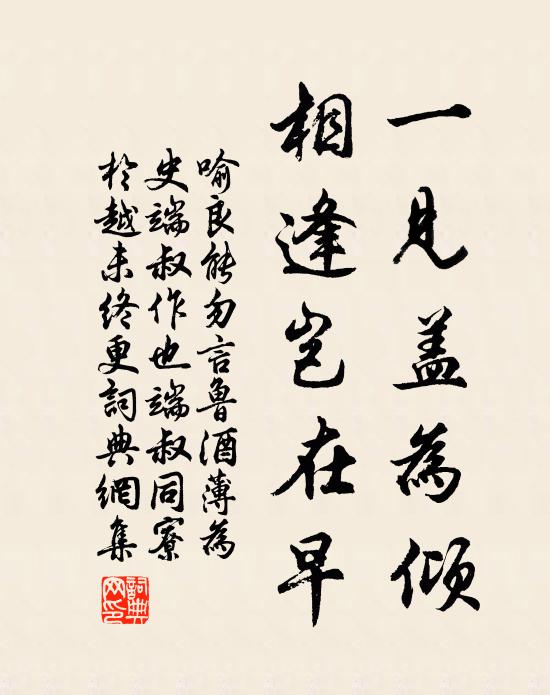 一見蓋為傾
相逢豈在早
喻良能勿言魯酒薄為
史端叔作也端叔同寮
於越未终更詞典網集
詞典網印